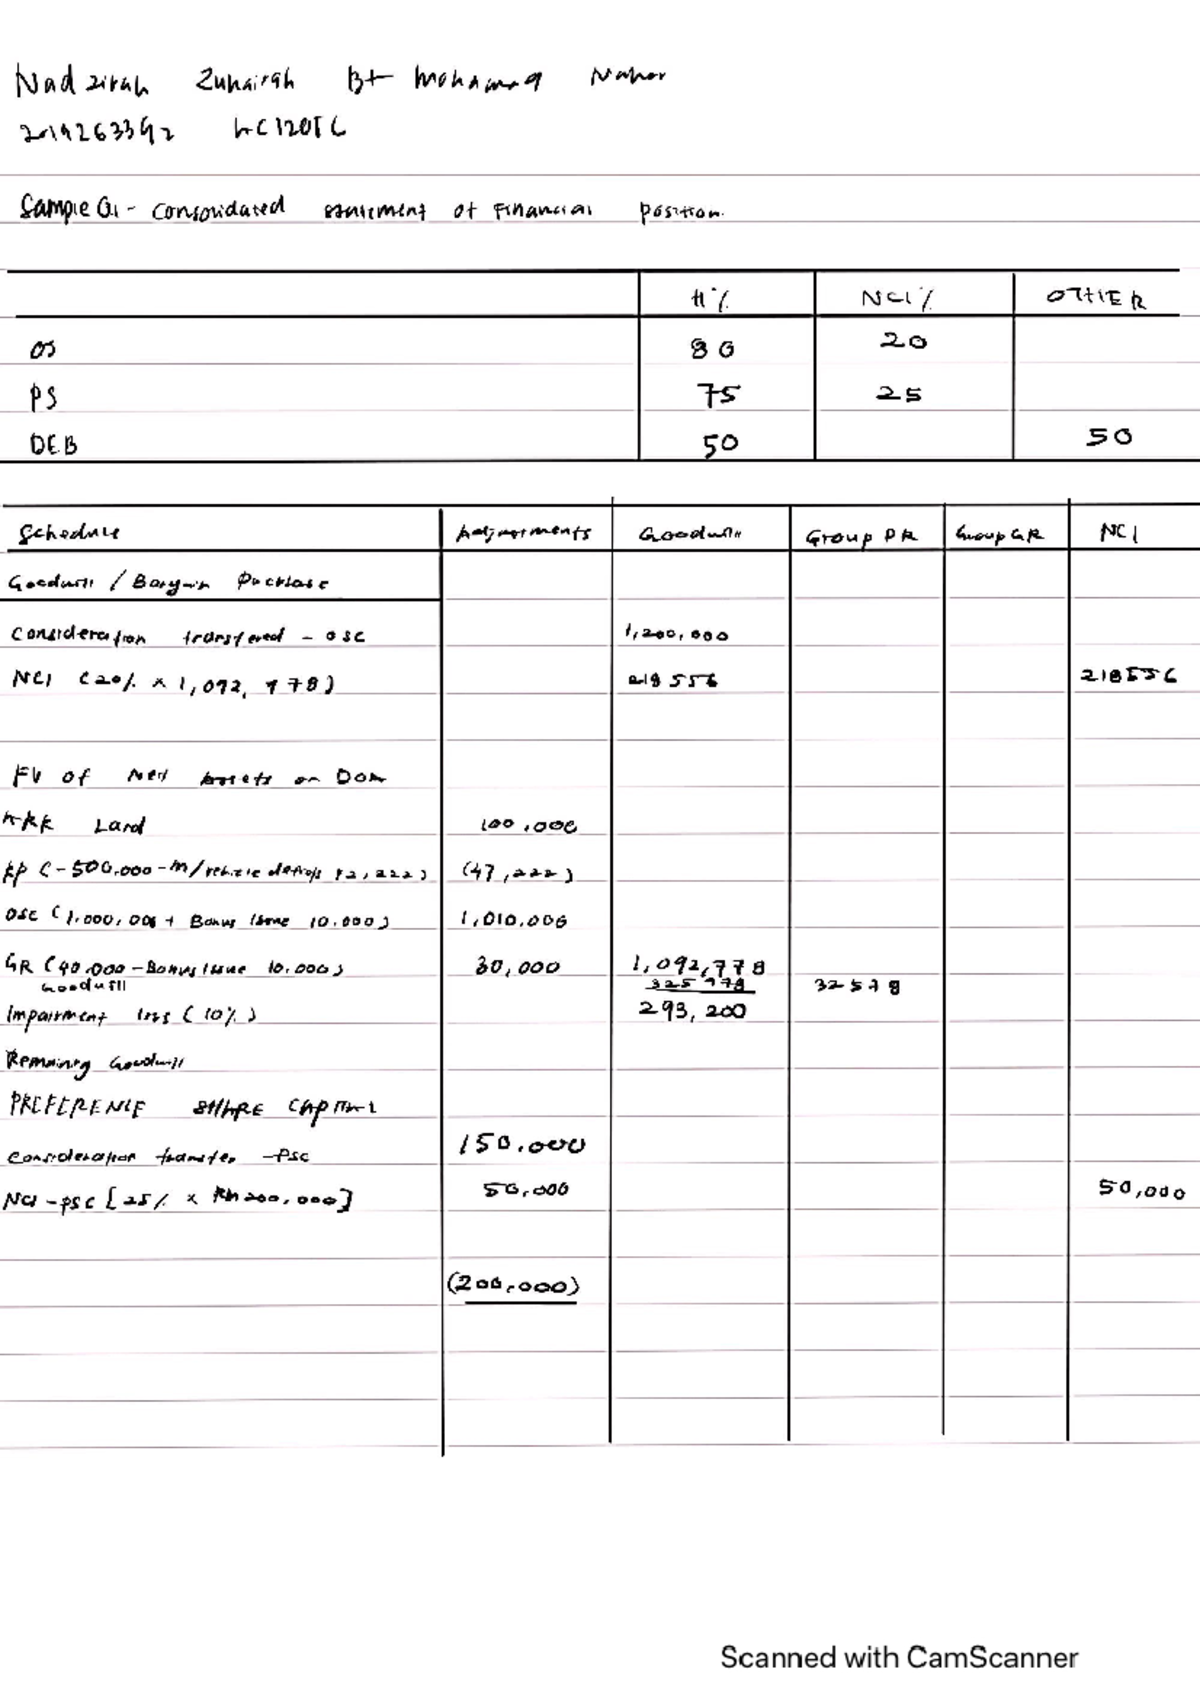 Nadzirah Zuhairah Bt Mohamad
Sample Q1 - Consolidated statement of Financial position.
H% NCI% OTHER
OS 80 20
PS 75 25
DEB 50 50
Schedule Adjustments Goodwill Group PR Group GR NCI
Goodwill / Bargain Purchase
Consideration transferred - OSC 1,200,000
NCI (20% x 1,092,778) 218556 218556
FV of Net Assets on DOA
ARR Land 100,000
RP (-500.000 - m/vehicle (47,222)
OSC (1,000,000 + Bonus Issue 10.000) 1,010,000
GR (40.000 - Bonus Issue 10.000) 30,000 1,092,778
Goodwill 325778 32578
Impairment loss (10%) 293,200
Remaining Goodwill
PREFERENCE SHARE CAPITAL
Consideration transfer - PSC 150.000
NCI - PSC [25% x RM200,000] 50,000 50,000
(200,000)
Scanned with CamScanner